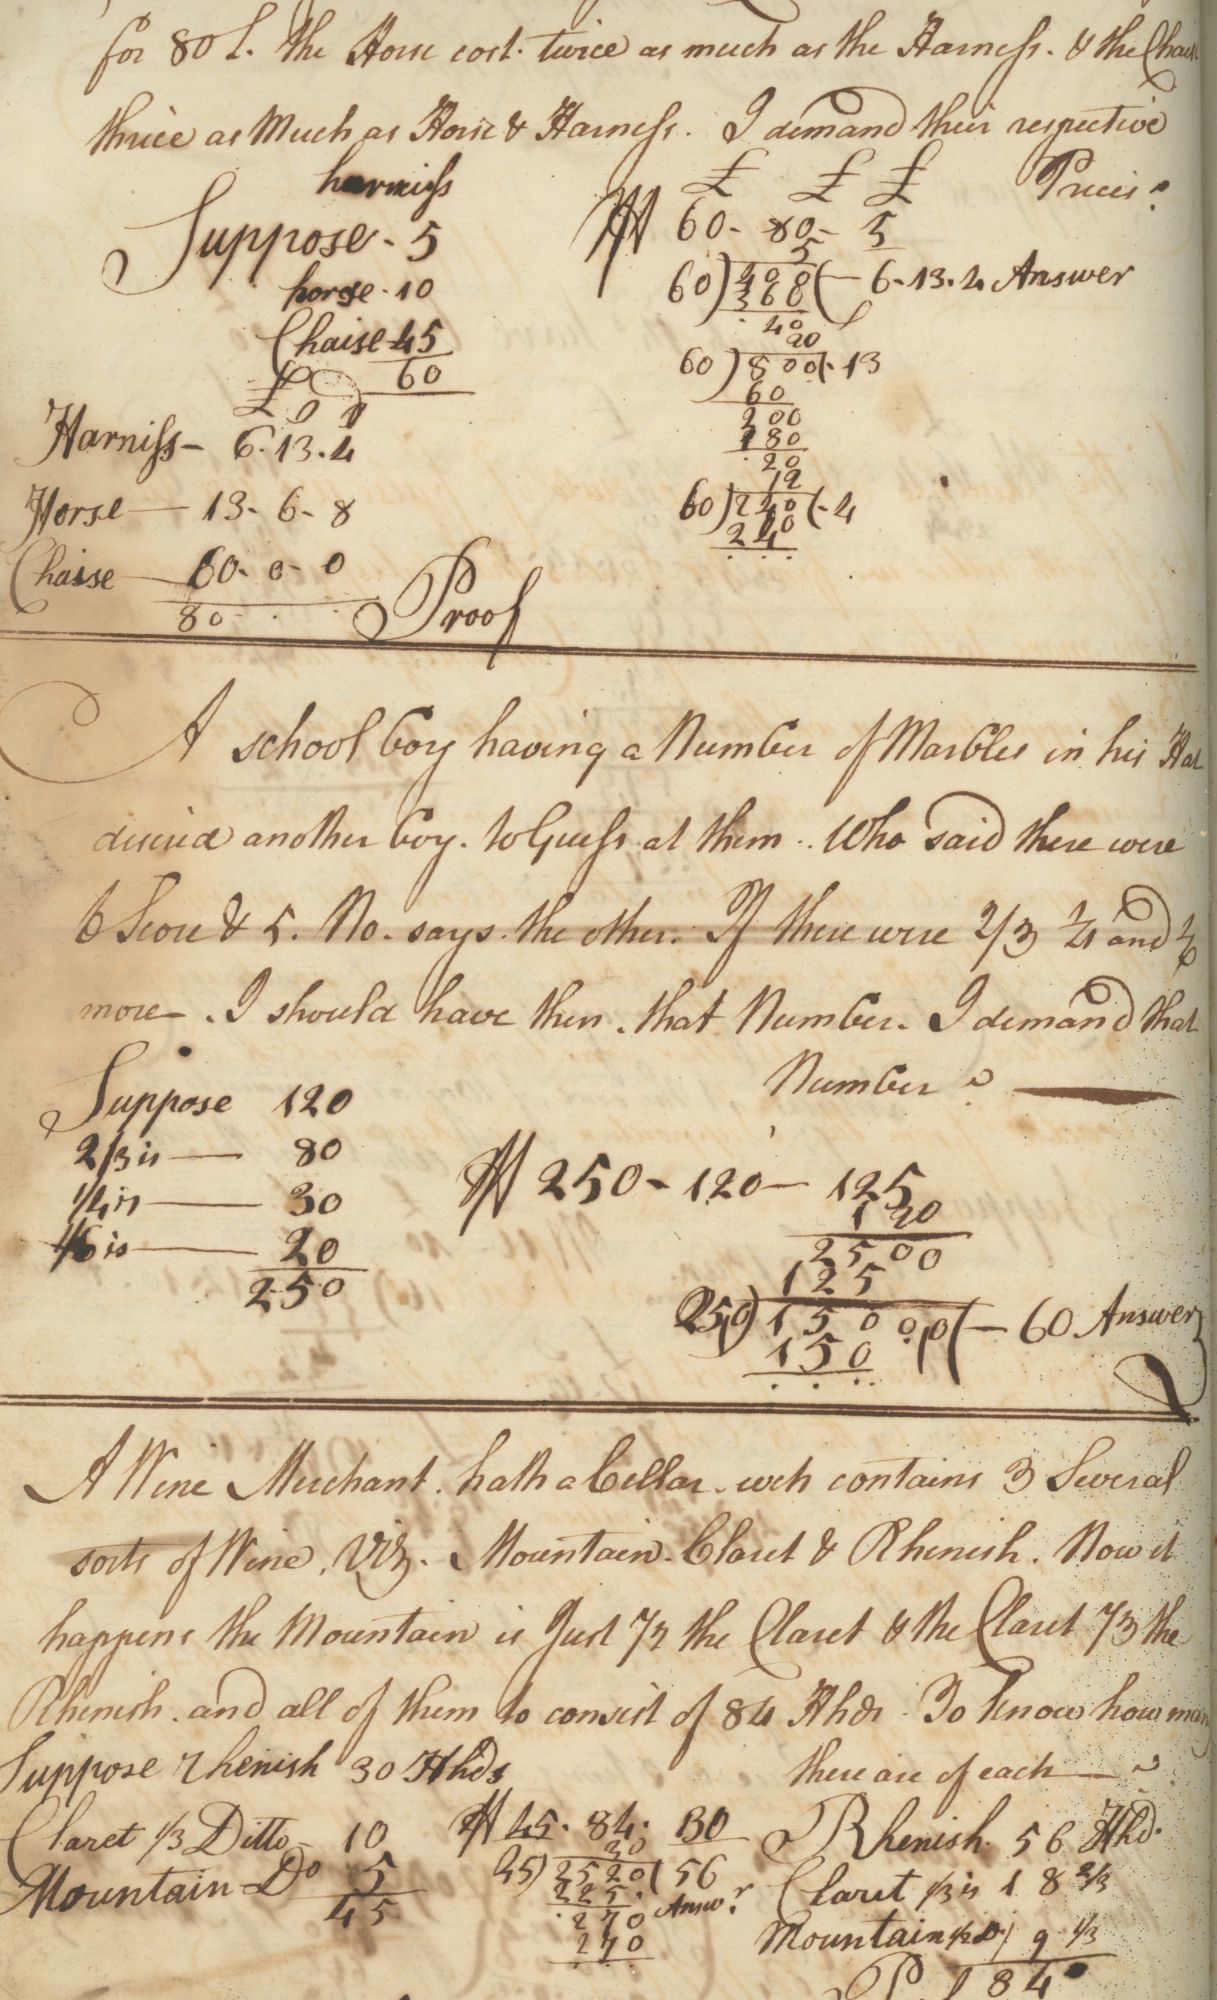 for 80 L. the Horse cost twice as much as the Harness. & the Chaise
thrice as Much as Horse & Harness. I demand their respective
Prices?
harniss
Suppose - 5
horse - 10
Chaise 45
60
£
Harniss - 6. 13. 4
Horse - 13 - 6 - 8
Chaise - 60 - 0 - 0
80 Proof
£ £ £
If 60 - 80 - 5
5
60) 400 ( - 6 - 13 - 4 Answer
360
40
20
60) 800 ( - 13
60
200
180
20
12
60) 240 ( - 4
240
A school boy having a Number of Marbles in his Hat
desired another boy. to Guess at them .. Who said there were
6 Score & 5. No. says the other. If there were 2/3 1/4 and 1/6
more . I should have then that Number. I demand that
Number?
Suppose 120
2/3 is — 80
1/4 is — 30
1/6 is — 20
250
If 250 - 120 - 125
120
2500
125
250) 15000 ( — 60 Answer
150
A Wine Merchant. hath a Cellar. wch contains 3 Several
sorts of Wine. Viz. Mountain. Claret & Rhenish. Now it
happens the Mountain is Just 1/2 the Claret & the Claret 1/3 the
Rhenish. and all of them to consist of 84 Hhds. To know how many
there are of each — ?
Suppose rhenish 30 Hhds
Claret 1/3 Ditto - 10
Mountain Do 5
45
If 45. 84. 30
30
45) 2520 ( 56
225 Answr.
270
270
Rhenish 56 Hhd.
Claret 1/3 is 18 2/3
Mountain 1/2 Do 9 1/3
84